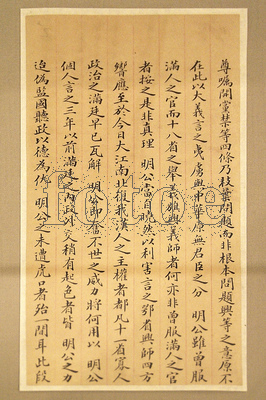 尊囑開黨禁等四條乃枝葉問題而非根本問題興等之意原不
在此以大義言之曳虜與中華原無君臣之分 明公雖曾服
滿人之官而十八省之舉義旗興義師者何亦非曾服滿人之官
者按之是非真理 明公當自曉然以利害言之鄂省興師四方
響應至於今日大江南北復我漢人之主權者都凡十一省寡人
政治之滿廷早已瓦解 明公即奮不世之威力將何用以 明公
個人言之三年以前滿廷之內政外交稍有起色者皆 明公之力
迨偽監國聽政以德為仇 明公之未遭虎口者殆一間耳此段